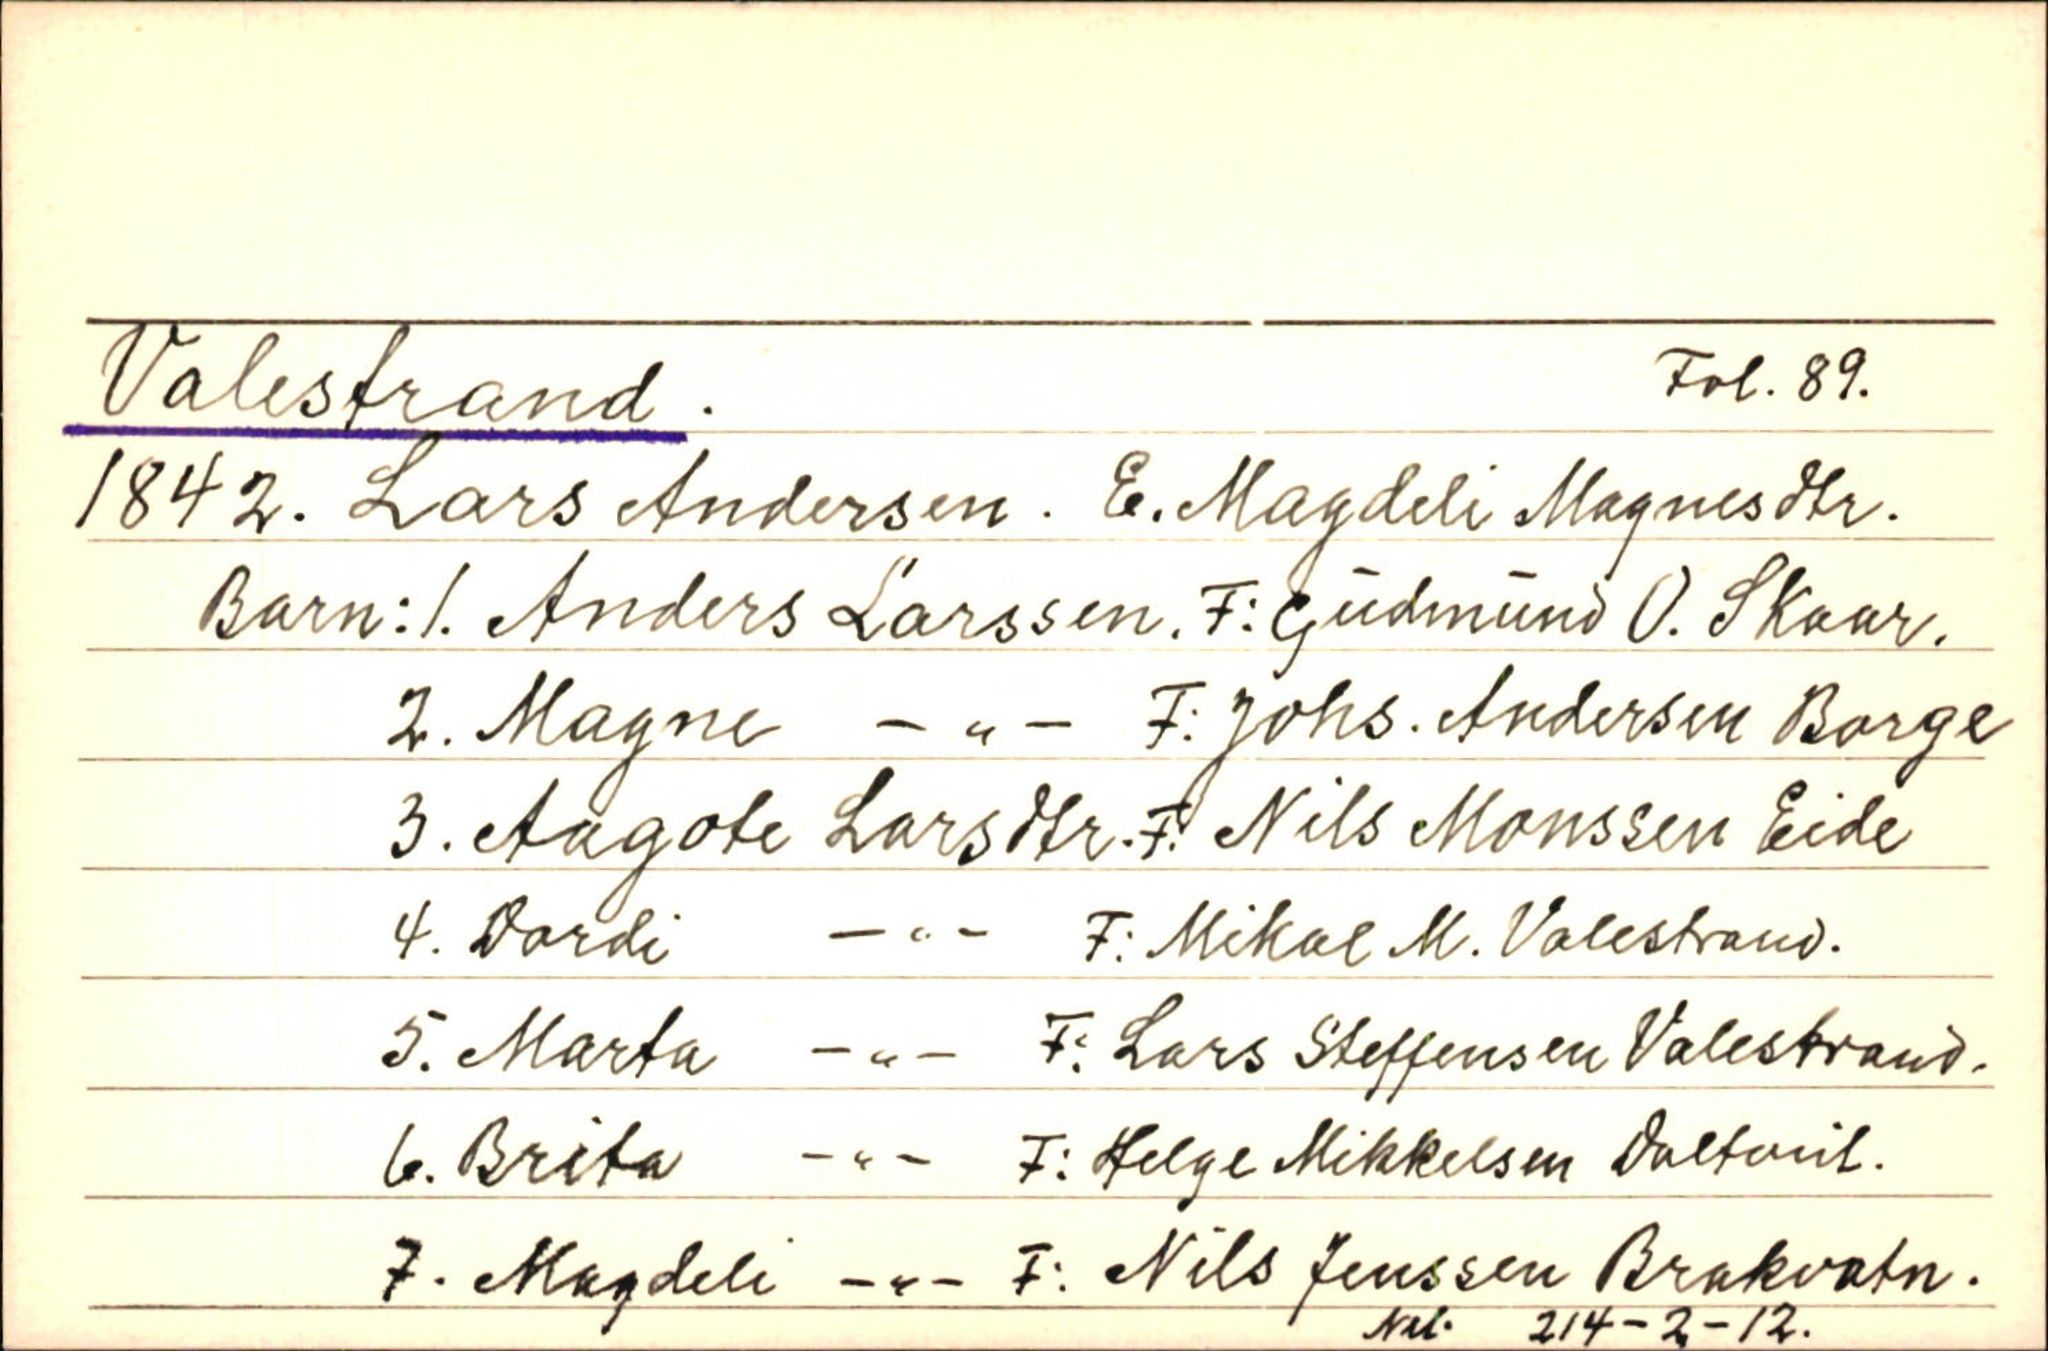 Valestrand. Fol. 89.
1842. Lars Andersen. E. Magdeli Magnesdtr.
Barn: 1. Anders Larssen. F: Gūdmūnd O. Skaar.
2. Magne — „ — F: Johs. Andersen Borge
3. Aagote Larsdtr. F: Nils Monssen Eide
4. Dordi — „ — F: Mikal M. Valestrand.
5. Marta — „ — F: Lars Steffensen Valestrand.
6. Brita — „ — F: Helge Mikkelsen
7. Magdeli — „ — F: Nils Jenssen Brakvatn.
214-2-12.